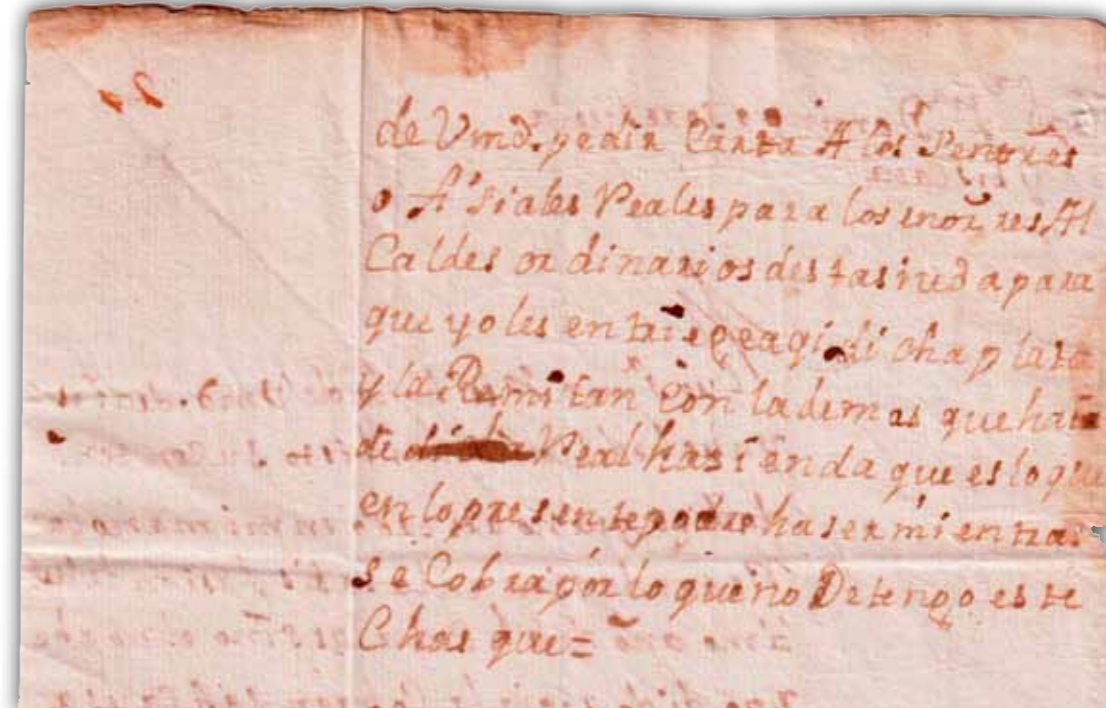 de Vmd. pedir Carta A los Señores
o fisiales Reales para los señores Al
Caldes ordinarios desta siudad para
que yo les entregue aqi dicha plata
y la Remitan con la demas que hai
de Real hasienda que es lo que
en lo presente podre haser mientras
se Cobra por lo que no Detengo este
Chasque=